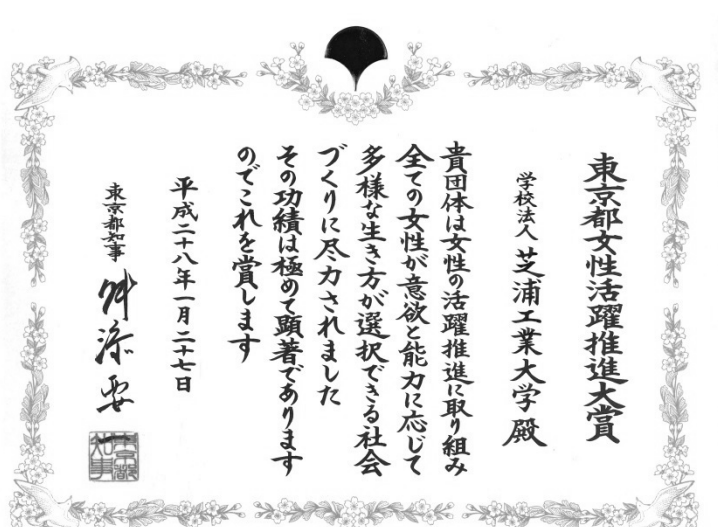 東京都女性活躍推進大賞
学校法人 芝浦工業大学 殿
貴団体は女性の活躍推進に取り組み
全ての女性が意欲と能力に応じて
多様な生き方が選択できる社会
づくりに尽力されました
その功績は極めて顕著であります
のでこれを賞します
平成二十八年一月二十七日
東京都知事 舛添要一
東京都知事